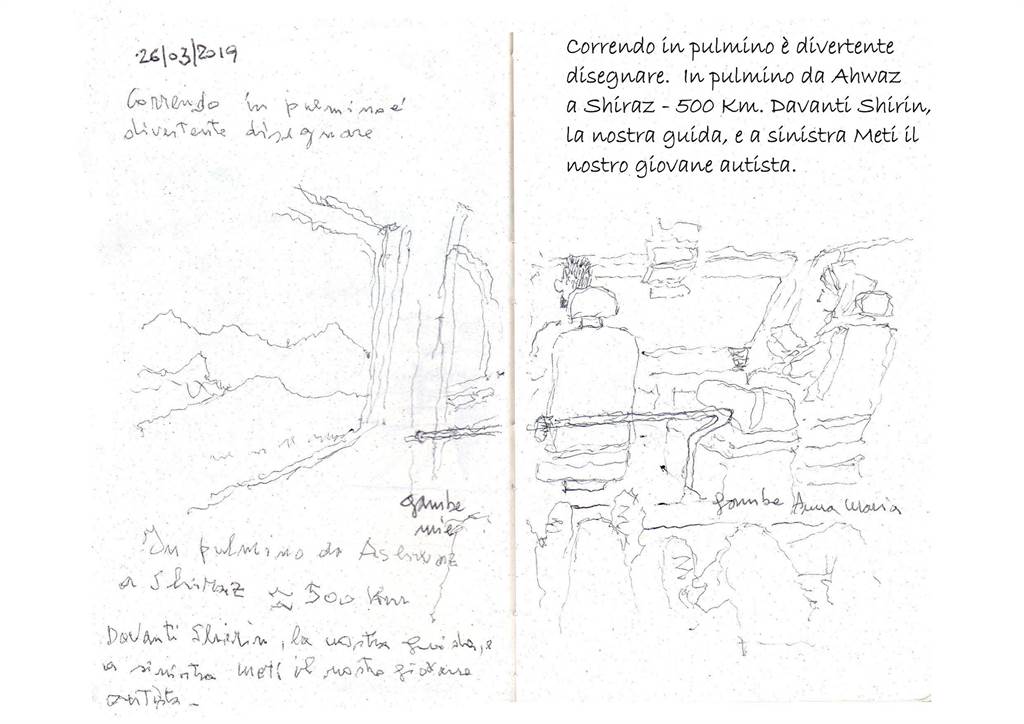 26/03/2019
Correndo in pulmino è
divertente disegnare
gambe
mie
In pulmino da Ashwaz
a Shiraz ≈ 500 Km
Davanti Shirin, la nostra guida, e
a sinistra Meti il nostro giovane
autista.
Correndo in pulmino è divertente
disegnare. In pulmino da Ahwaz
a Shiraz - 500 Km. Davanti Shirin,
la nostra guida, e a sinistra Meti il
nostro giovane autista.
gambe Anna Maria